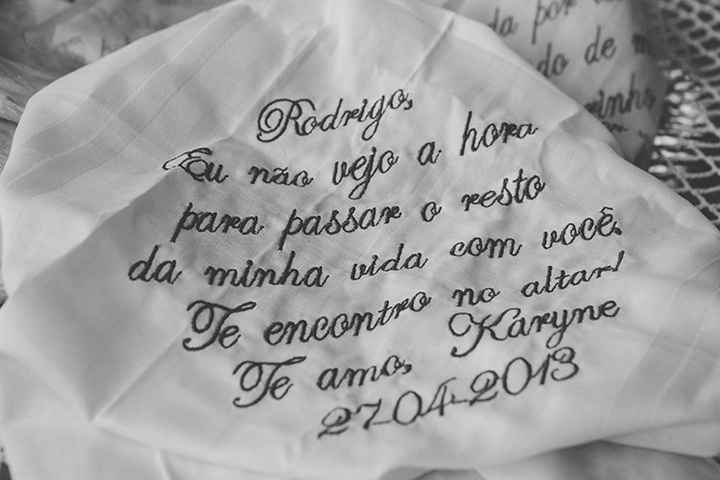 Rodrigo,
Eu não vejo a hora
para passar o resto
da minha vida com você.
Te encontro no altar!
Te amo, Karyne
27-04-2013
da por
do de
minha